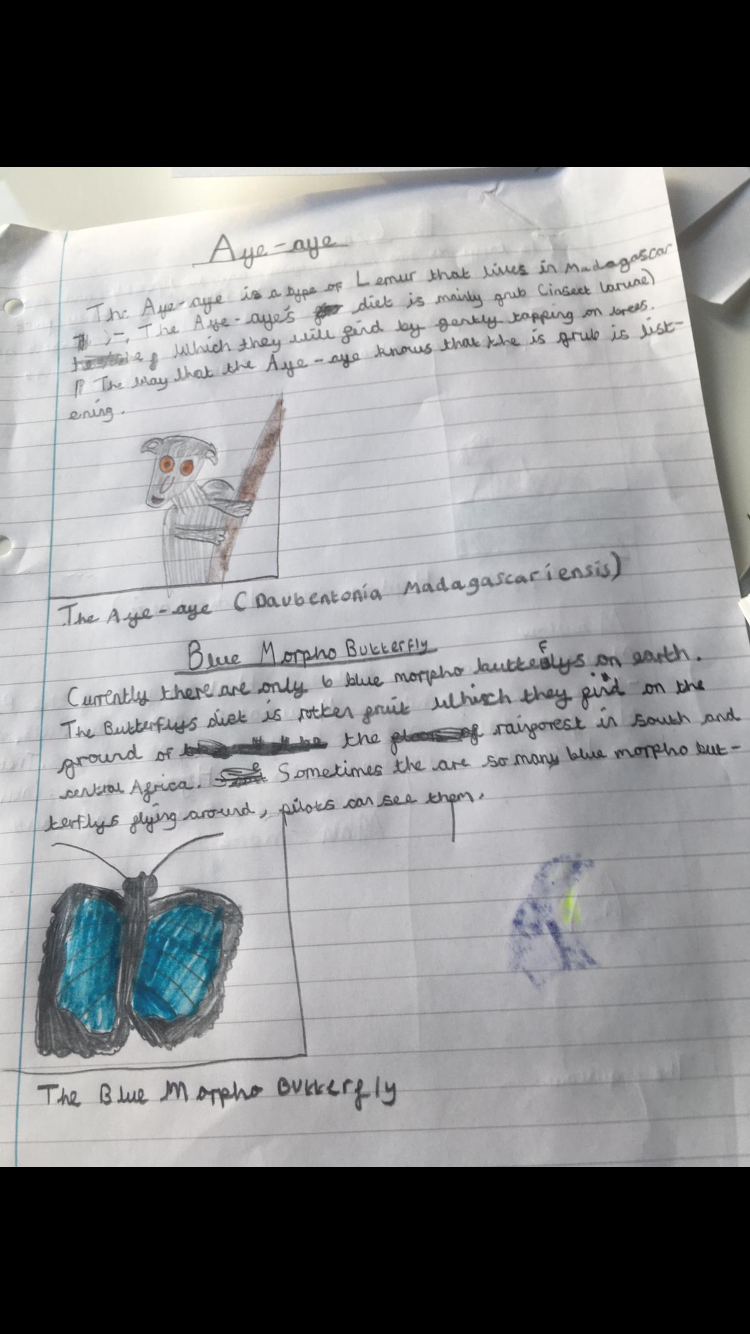 Aye-aye
The Aye-aye is a type of Lemur that lives in Madagascar
The Aye-aye's diet is mainly grub (insect larvae)
which they will find by gently tapping on trees.
The way that the Aye-aye knows that the is grub is list-
ening.
The Aye-aye (Daubentonia Madagascariensis)
Blue Morpho Butterfly
Currently there are only 6 blue morpho butterflys on earth.
The Butterflys diet is rotten fruit which they find on the
ground of the rainforest in south and
central Africa. Sometimes the are so many blue morpho but-
terflys flying around, pilots can see them.
The Blue Morpho Butterfly